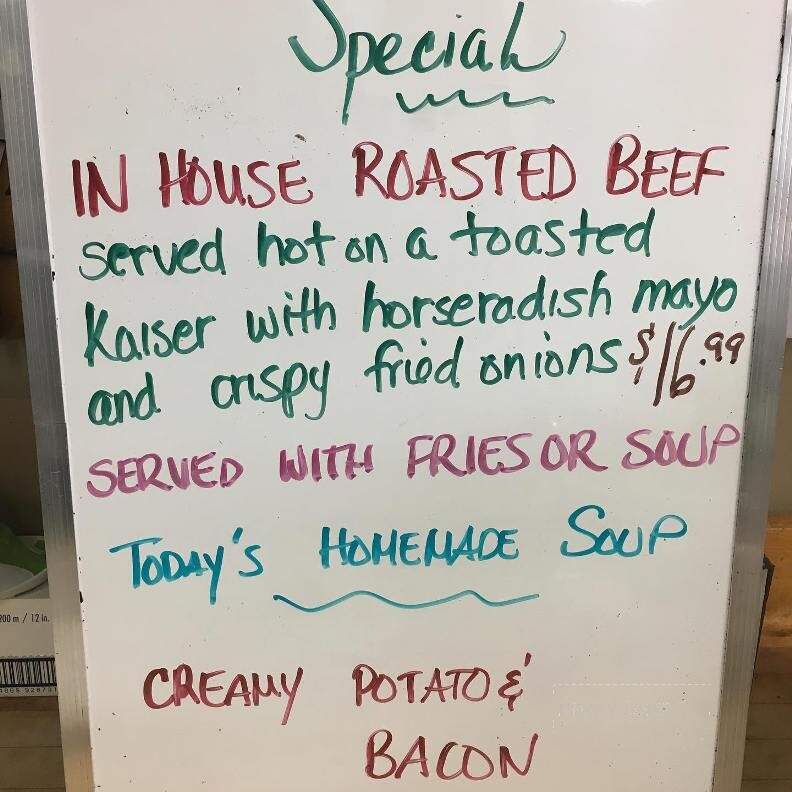 Special
IN HOUSE ROASTED BEEF
served hot on a toasted
Kaiser with horseradish mayo
and crispy fried onions $16.99
SERVED WITH FRIES OR SOUP
TODAY'S HOMEMADE SOUP
CREAMY POTATO &
BACON
200 m / 12 in.